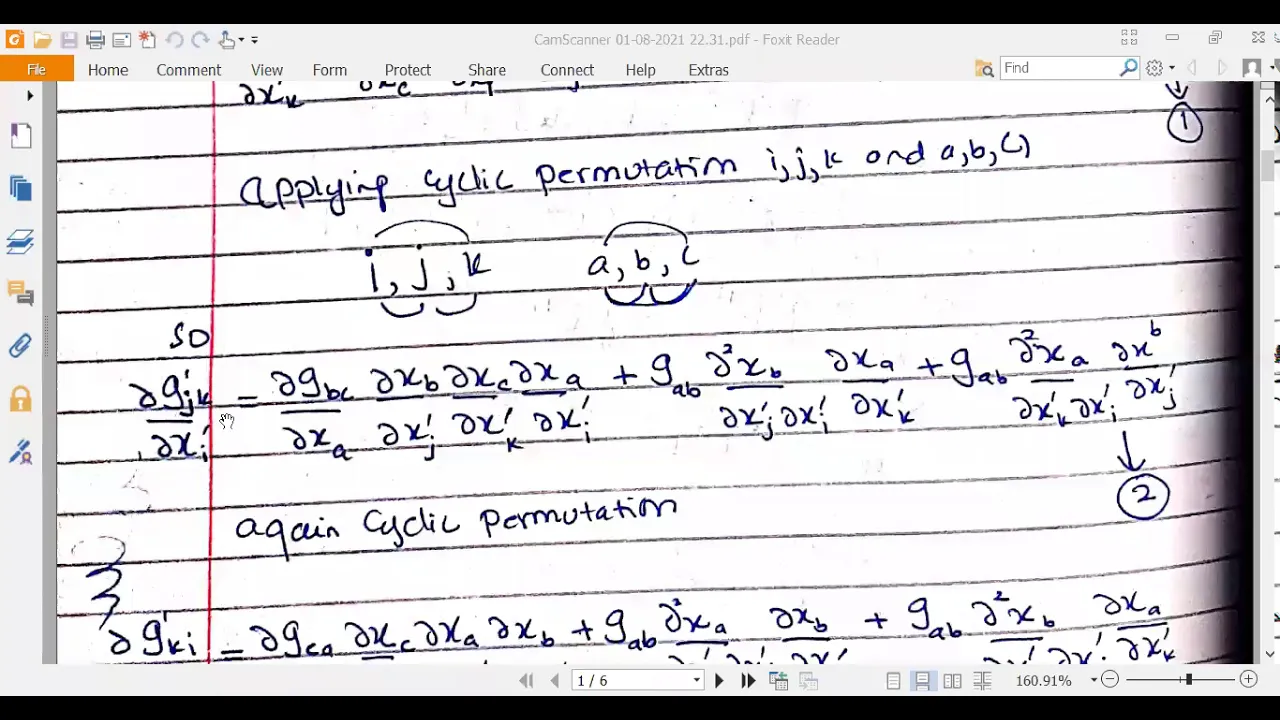 CamScanner 01-08-2021 22.31.pdf - Foxit Reader
File Home Comment View Form Protect Share Connect Help Extras Find
∂x'k ∂xc
1
Applying cyclic permutation i,j,k and a,b,c)
i, j, k a, b, c
so
∂g'jk/∂x'i = ∂gbc/∂xa ∂xb/∂x'j ∂xc/∂x'k ∂xa/∂x'i + gab ∂²xb/∂x'j∂x'i ∂xa/∂x'k + gab ∂²xa/∂x'k∂x'i ∂x^b/∂x'j
2
again cyclic permutation
3
∂g'ki = ∂gca ∂xc ∂xa ∂xb + gab ∂²xa ∂xb + gab ∂²xb ∂xa
∂x'i ∂x'k
1 / 6 160.91%